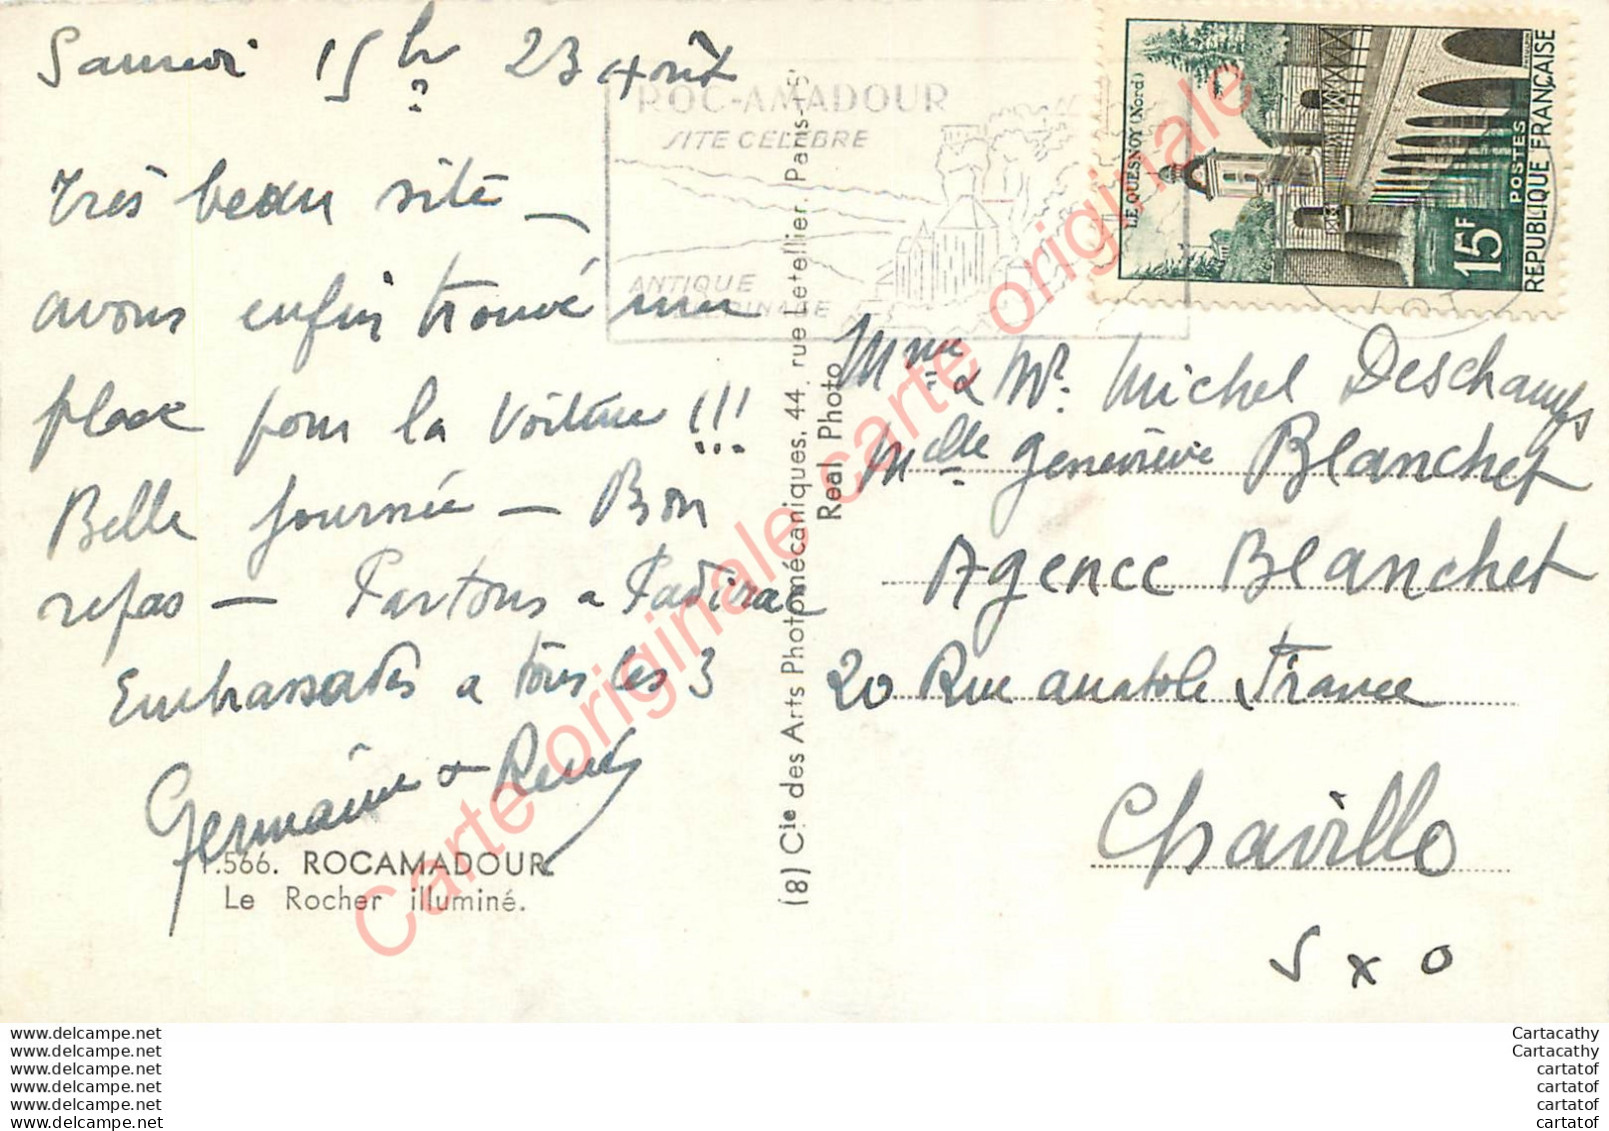 Samedi 15h 23 Août
Très beau site —
avons enfin trouvé une
place pour la voiture !!!
Belle journée — Bon
repas — Partons a Padirac
Embrassades a tous les 3
Germaine & René
1.566. ROCAMADOUR
Le Rocher illuminé.
(8) Cie des Arts Photomécaniques, 44, rue Letellier. Paris-15'
Real Photo
ROC-AMADOUR
SITE CÉLÈBRE
ANTIQUE
LE QUESNOY (Nord)
15F
POSTES
REPUBLIQUE FRANÇAISE
LOT
Mme & Mr. Michel Deschamps
Melle Geneviève Blanchet
Agence Blanchet
20 Rue anatole France
Chaville
S x O
Carte originale carte originale
www.delcampe.net
www.delcampe.net
www.delcampe.net
www.delcampe.net
www.delcampe.net
www.delcampe.net
Cartacathy
Cartacathy
cartatof
cartatof
cartatof
cartatof